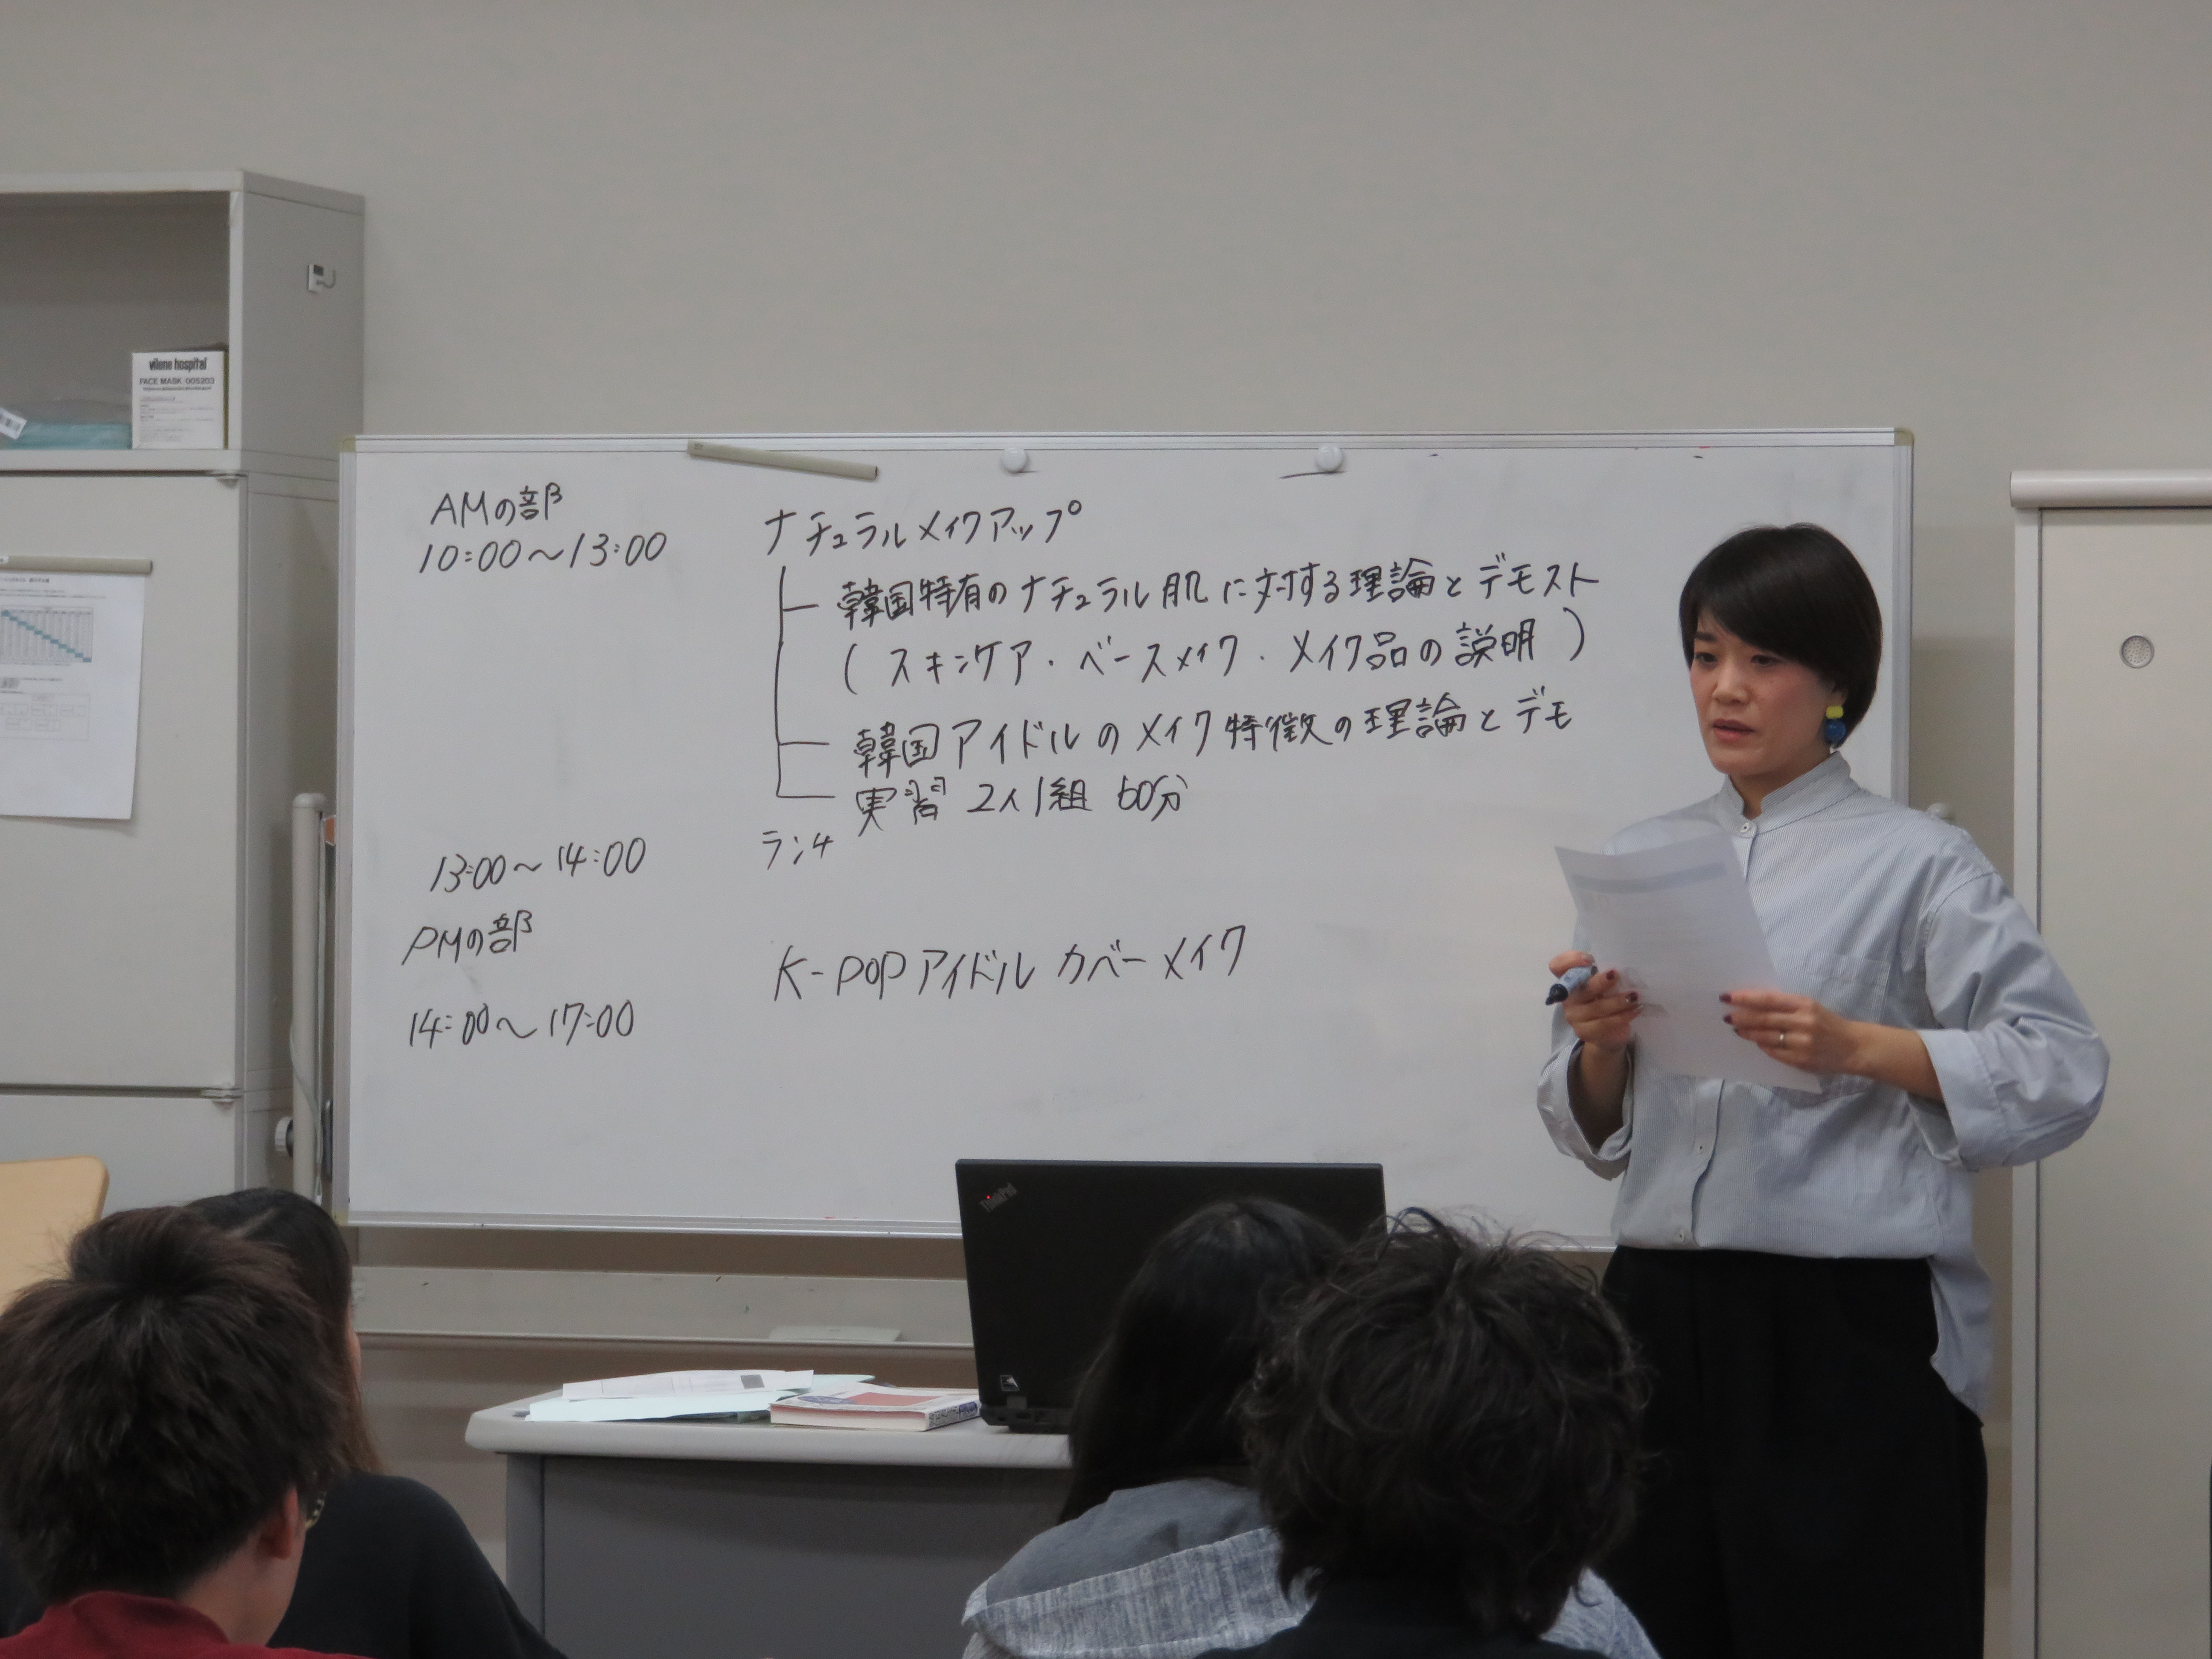 vilene hospital
FACE MASK 005203
AMの部
10:00～13:00
ナチュラルメイクアップ
韓国特有のナチュラル肌に対する理論とデモスト
(スキンケア・ベースメイク・メイク品の説明)
韓国アイドルのメイク特徴の理論とデモ
実習 2人1組 60分
13:00～14:00
ランチ
PMの部
14:00～17:00
K-POPアイドルカバーメイク
ThinkPad